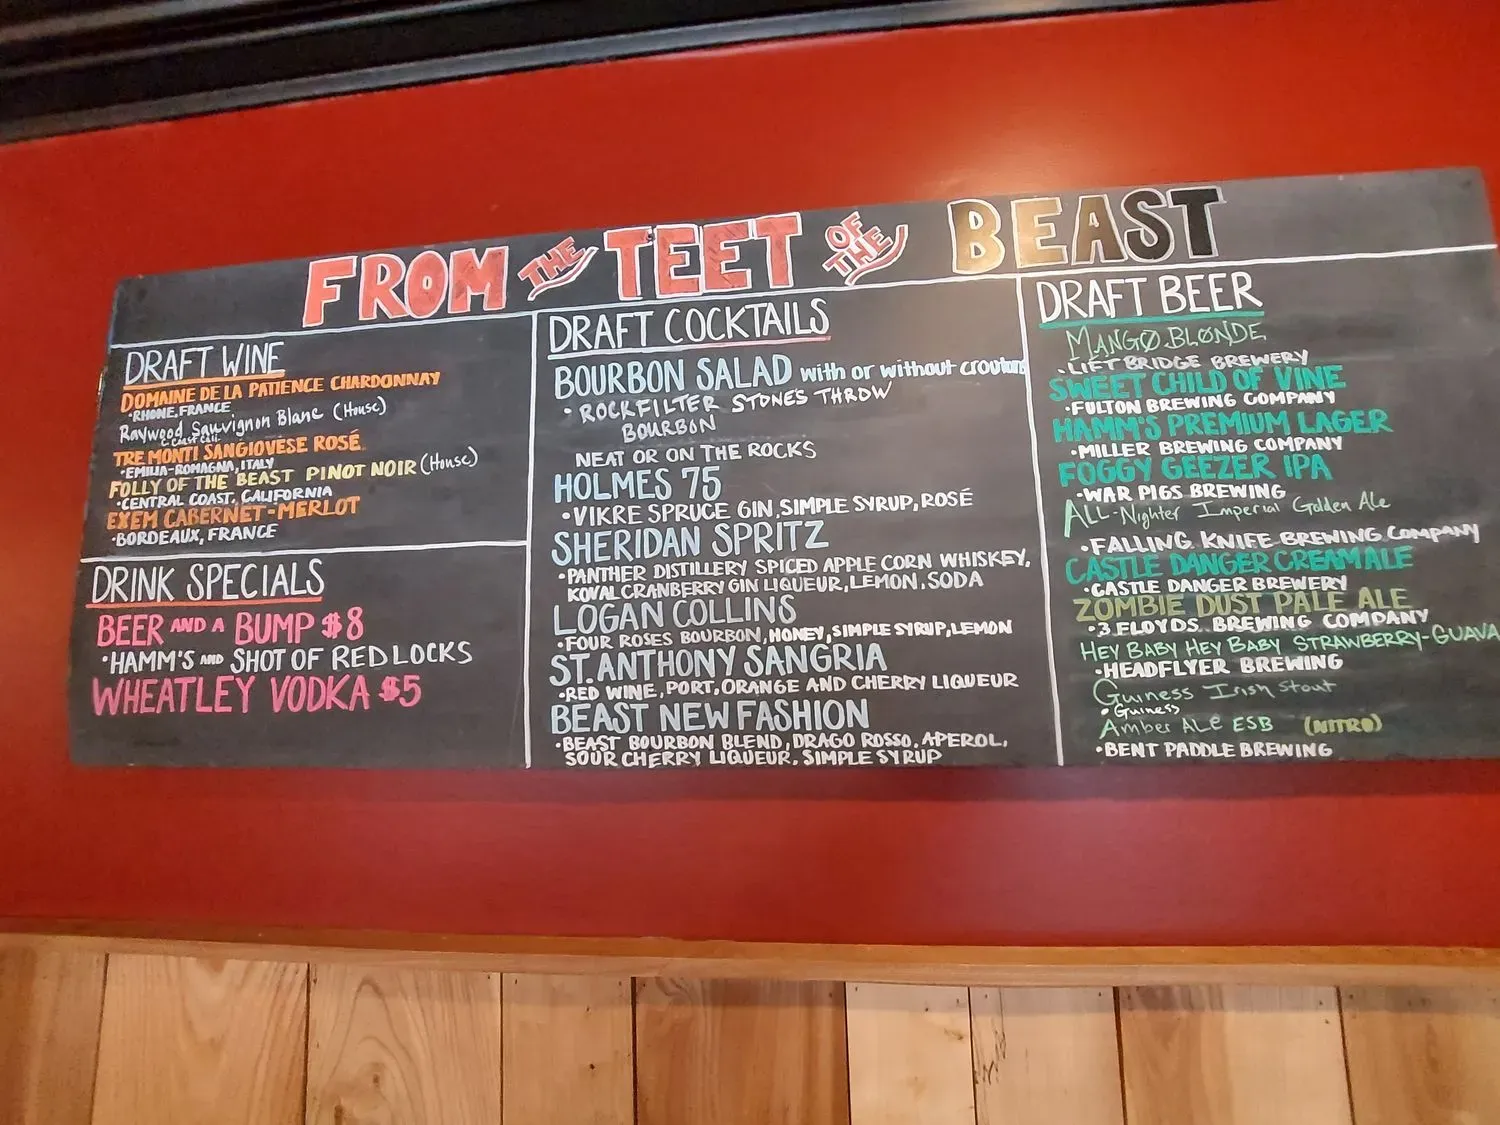 FROM THE TEET OF THE BEAST
DRAFT WINE
DOMAINE DE LA PATIENCE CHARDONNAY
•RHONE, FRANCE
Raywood Sauvignon Blanc (House)
Coast Cali.
TRE MONTI SANGIOVESE ROSÉ
•EMILIA-ROMAGNA, ITALY
FOLLY OF THE BEAST PINOT NOIR (House)
•CENTRAL COAST, CALIFORNIA
EXEM CABERNET-MERLOT
•BORDEAUX, FRANCE
DRINK SPECIALS
BEER AND A BUMP $8
•HAMM'S AND SHOT OF RED LOCKS
WHEATLEY VODKA $5
DRAFT COCKTAILS
BOURBON SALAD with or without croutons
•ROCKFILTER STONES THROW
BOURBON
NEAT OR ON THE ROCKS
HOLMES 75
•VIKRE SPRUCE GIN, SIMPLE SYRUP, ROSÉ
SHERIDAN SPRITZ
•PANTHER DISTILLERY SPICED APPLE CORN WHISKEY,
KOVAL CRANBERRY GIN LIQUEUR, LEMON, SODA
LOGAN COLLINS
•FOUR ROSES BOURBON, HONEY, SIMPLE SYRUP, LEMON
ST. ANTHONY SANGRIA
•RED WINE, PORT, ORANGE AND CHERRY LIQUEUR
BEAST NEW FASHION
•BEAST BOURBON BLEND, DRAGO ROSSO, APEROL,
SOUR CHERRY LIQUEUR, SIMPLE SYRUP
DRAFT BEER
MANGO BLONDE
•LIFT BRIDGE BREWERY
SWEET CHILD OF VINE
•FULTON BREWING COMPANY
HAMM'S PREMIUM LAGER
•MILLER BREWING COMPANY
FOGGY GEEZER IPA
•WAR PIGS BREWING
ALL-Nighter Imperial Golden Ale
•FALLING KNIFE BREWING COMPANY
CASTLE DANGER CREAM ALE
•CASTLE DANGER BREWERY
ZOMBIE DUST PALE ALE
•3 FLOYDS BREWING COMPANY
HEY BABY HEY BABY STRAWBERRY-GUAVA
•HEADFLYER BREWING
Guiness Irish Stout
•Guiness
Amber ALE ESB (NITRO)
•BENT PADDLE BREWING